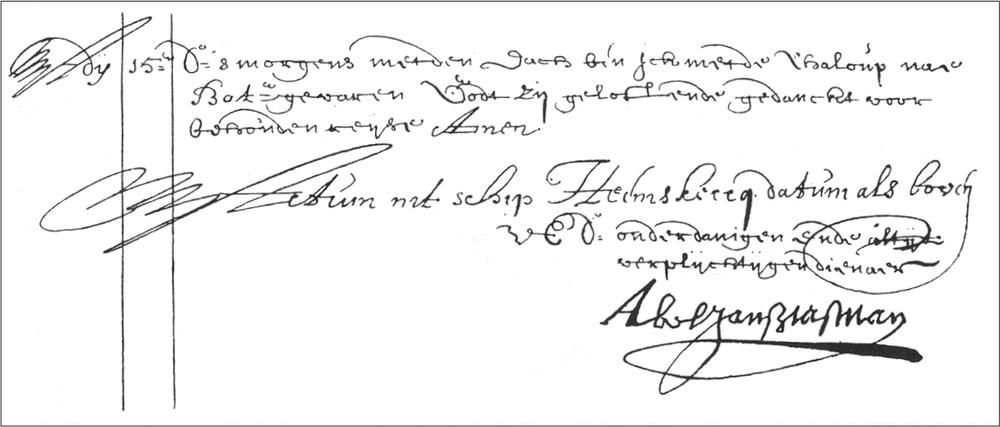 Adÿ 15=en Do= 's morgens met den dach ben ick met de Chaloúp nae
Bat=a gevaren Godt zij gelooft ende gedanckt voor
behouden reijse Amen.
Actúm int schip Heemskercq datúm als boven
U E Do= onderdanigen Ende altijt
verplijchtijgen dienaer
Abel Jansz Tasman